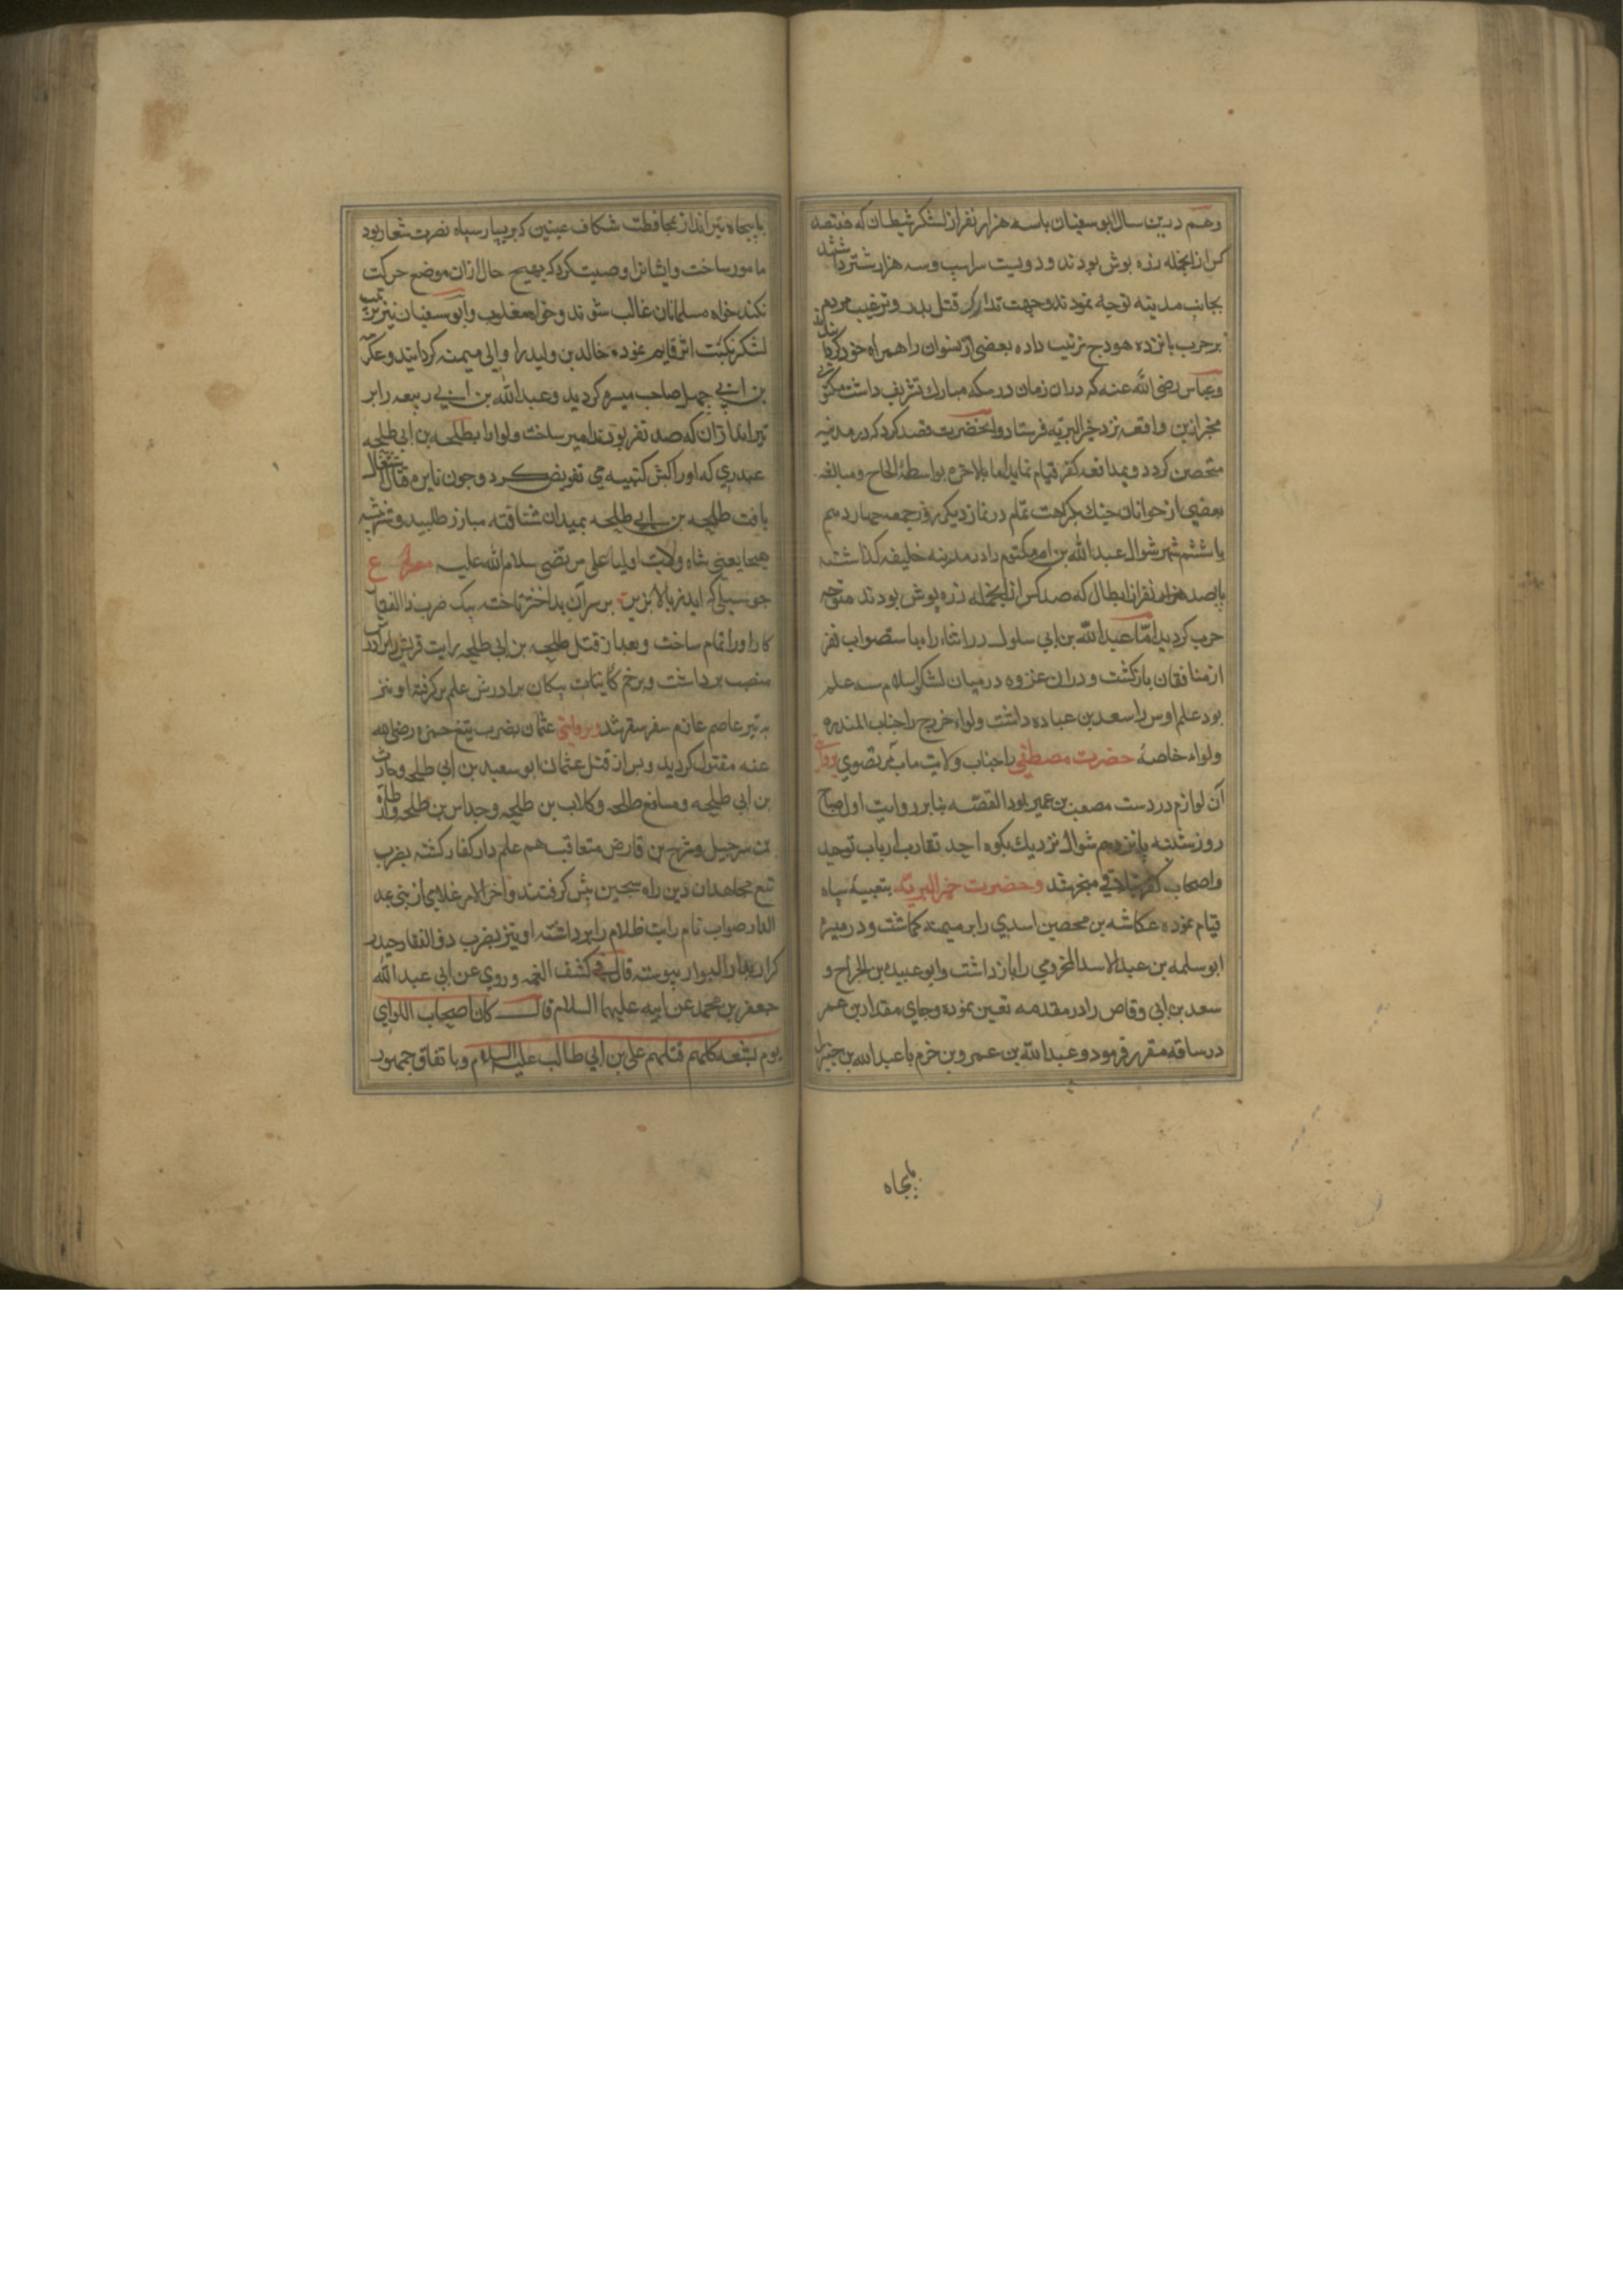 وهم درین سال ابو سفیان باسه هزار نفر از لشکر شیطان که هفتصد
کس ازانجمله زره پوش بودند ودویست سراسب وسه هزار شتر داشتند
بجانب مدینه توجه نمودند وجهت تدارک قتل بدر وترغیب مردم
برحرب پانزده هودج ترتیب داده بعضی از نسوان را همراه خود کردانیدند
وعباس رضی الله عنه که دران زمان در مکه مبارک تشریف داشت مکتوبی
مخبر ازین واقعه نزد خیر البریه فرستاد وانحضرت قصد کرد که در مدینه
متحصن کردد وبمدافعه کفر قیام نماید اما بالاخره بواسطهٔ الحاح ومبالغه
بعضی از جوانان جنک بکراهت تمام در نماز دیکر روز جمعه چهاردهم
یا ششم شهر شوال عبد الله بن ام مکتوم را در مدینه خلیفه کذاشته
باهزار نفر از ابطال که صد کس ازانجمله زره پوش بودند متوجه
حرب کردید امّا عبد الله بن ابی سلول در اثناء راه با سیصد نفر
از منافقان بازکشت ودران غزوه درمیان لشکر اسلام سه علم
بود علم اوس را سعد بن عباده داشت ولواء خزرج را جناب المنذره
ولواء خاصهٔ حضرت مصطفی را جناب ولایت ماب مرتضوی وبروایتی
آن لوا هم در دست مصعب بن عمیر بود القصّه بنابر روایت اول صباح
روز شنبه پانزدهم شوال نزدیک بکوه احد تقارب ارباب توحید
واصحاب کفر بتلاقی منجر شد وحضرت خیر البریّه بتعبیهٔ سپاه
قیام نموده عکاشه بن محصین اسدی را بر میمنه کماشت ودر میسرهٔ
ابو سلمه بن عبد الاسد المخزومی را باز داشت وابو عبیده بن الجراح و
سعد بن ابی وقاص را در مقدمه تعین نموده وجای مقداد بن عمر
در ساقه مقرر فرمود وعبد الله بن عمرو بن خرم با عبد الله بن جبیر را
باپنجاه
باپنجاه تیرانداز بمحافظت شکاف عینین که بر یسار سپاه نصرت شعار بود
مامور ساخت وایشانرا وصیت کرد که بهیچ حال ازان موضع حرکت
نکنند خواه مسلمانان غالب شوند وخواه مغلوب وابو سفیان نیز ترتیب
لشکر نکبت اثر قایم نموده خالد بن ولید را والی میمنه کردانید وعکرمه
بن ابی جهل صاحب میسره کردید وعبد الله بن ابی ربیعه را بر
تیراندازان که صد نفر بودند امیر ساخت ولوا را بطلحه بن ابی طلحه
عبدری که اورا کبش کتیبه می تفویض کرد وچون نایره قتال اشتعال
یافت طلحه بن ابی طلحه بمیدان شتافته مبارز طلبید وشیر بیشه
هیجا یعنی شاه ولایت اولیا علی مرتضی سلام الله علیه مصراع ع
چو سیلی که اید ز بالا بزیر بر سر آن بداختر تاخته بیک ضرب ذا الفقار
کار اورا تمام ساخت وبعد از قتل طلحه بن ابی طلحه رایت قریش را برادرش
مصعب برداشت وبزخم پیکان برادرش علم برکرفته او نیز
به تیر عاصم عازم سفر سقر شد وبروایتی عثمان بضرب تیغ حمزه رضی الله
عنه مقتول کردید وپس از قتل عثمان ابو سعید بن ابی طلحه وحارث
بن ابی طلحه ومسافع طلحه وکلاب بن طلحه وجداس بن طلحه وارطاة
بن سرجیل وشریح بن قارض متعاقب هم علم دار کفار کشته بضرب
تیغ مجاهدان دین راه سجین پیش کرفتند واخر الامر غلامی از بنی عبد
الدار صواب نام رایت ظلام را برداشته او نیز بضرب ذو الفقار حیدر
کرار بدار البوار پیوست قال فی کشف الغمه وروی عن ابی عبد الله
جعفر بن محمد عن ابیه علیهما السلام قال کان اصحاب اللوای
یوم تسعه کلهم قتلهم علی بن ابی طالب علیه السلام وباتفاق جمهور